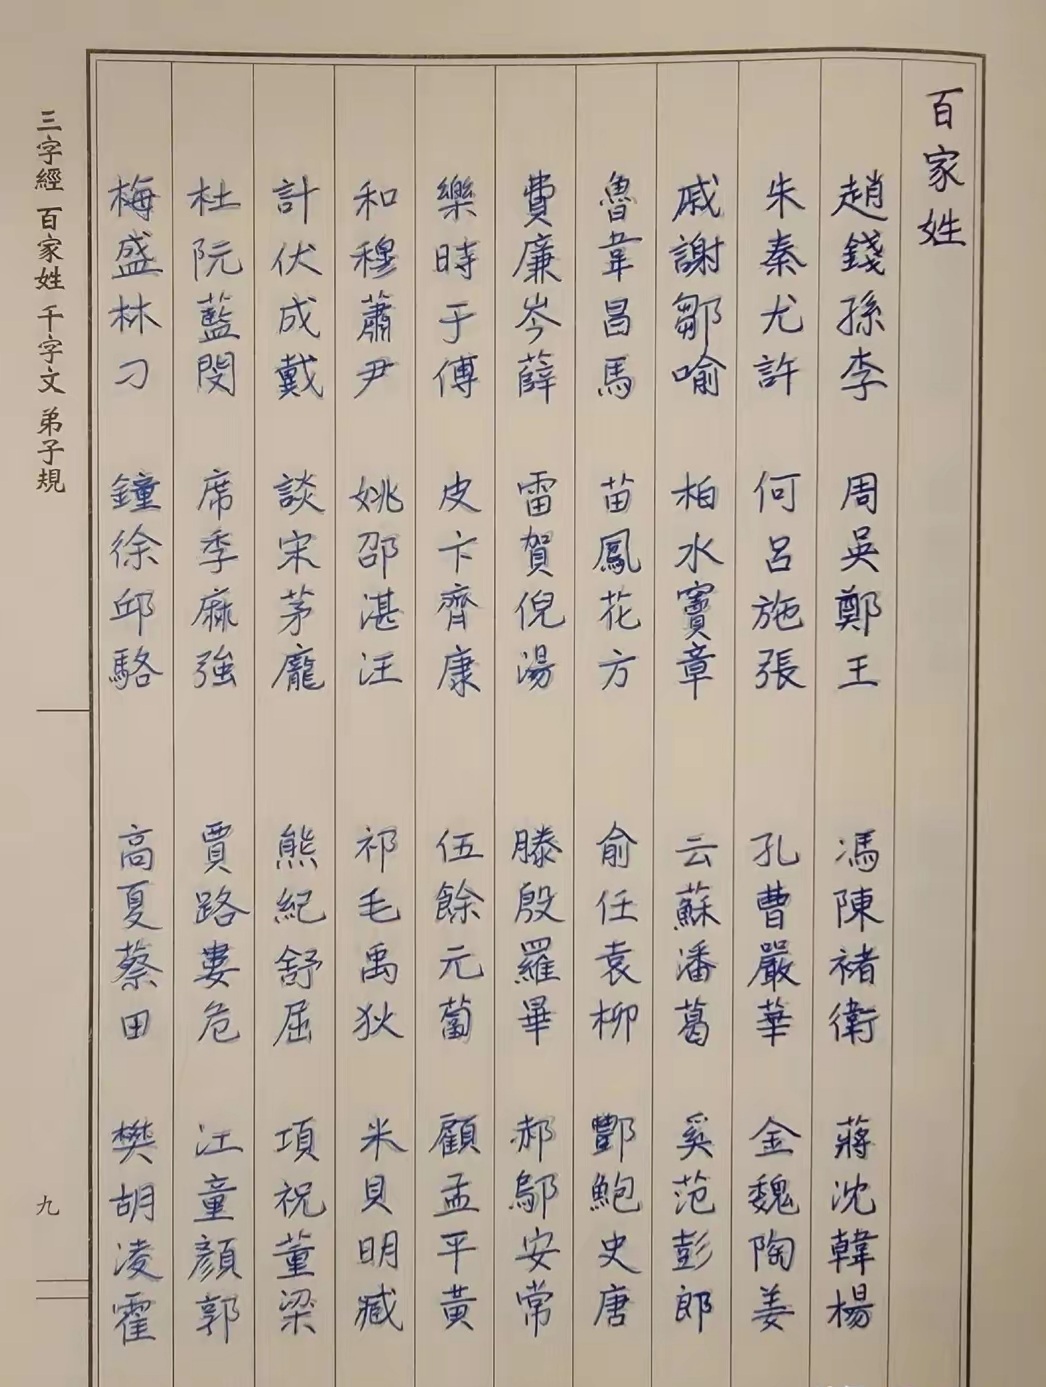 百家姓
趙錢孫李 周吳鄭王 馮陳褚衛 蔣沈韓楊
朱秦尤許 何呂施張 孔曹嚴華 金魏陶姜
戚謝鄒喻 柏水竇章 云蘇潘葛 奚范彭郎
魯韋昌馬 苗鳳花方 俞任袁柳 酆鮑史唐
費廉岑薛 雷賀倪湯 滕殷羅畢 郝鄔安常
樂時于傅 皮卞齊康 伍餘元蔔 顧孟平黃
和穆蕭尹 姚邵湛汪 祁毛禹狄 米貝明臧
計伏成戴 談宋茅龐 熊紀舒屈 項祝董梁
杜阮藍閔 席季麻強 賈路婁危 江童顏郭
梅盛林刁 鐘徐邱駱 高夏蔡田 樊胡凌霍
三字經 百家姓 千字文 弟子規
九